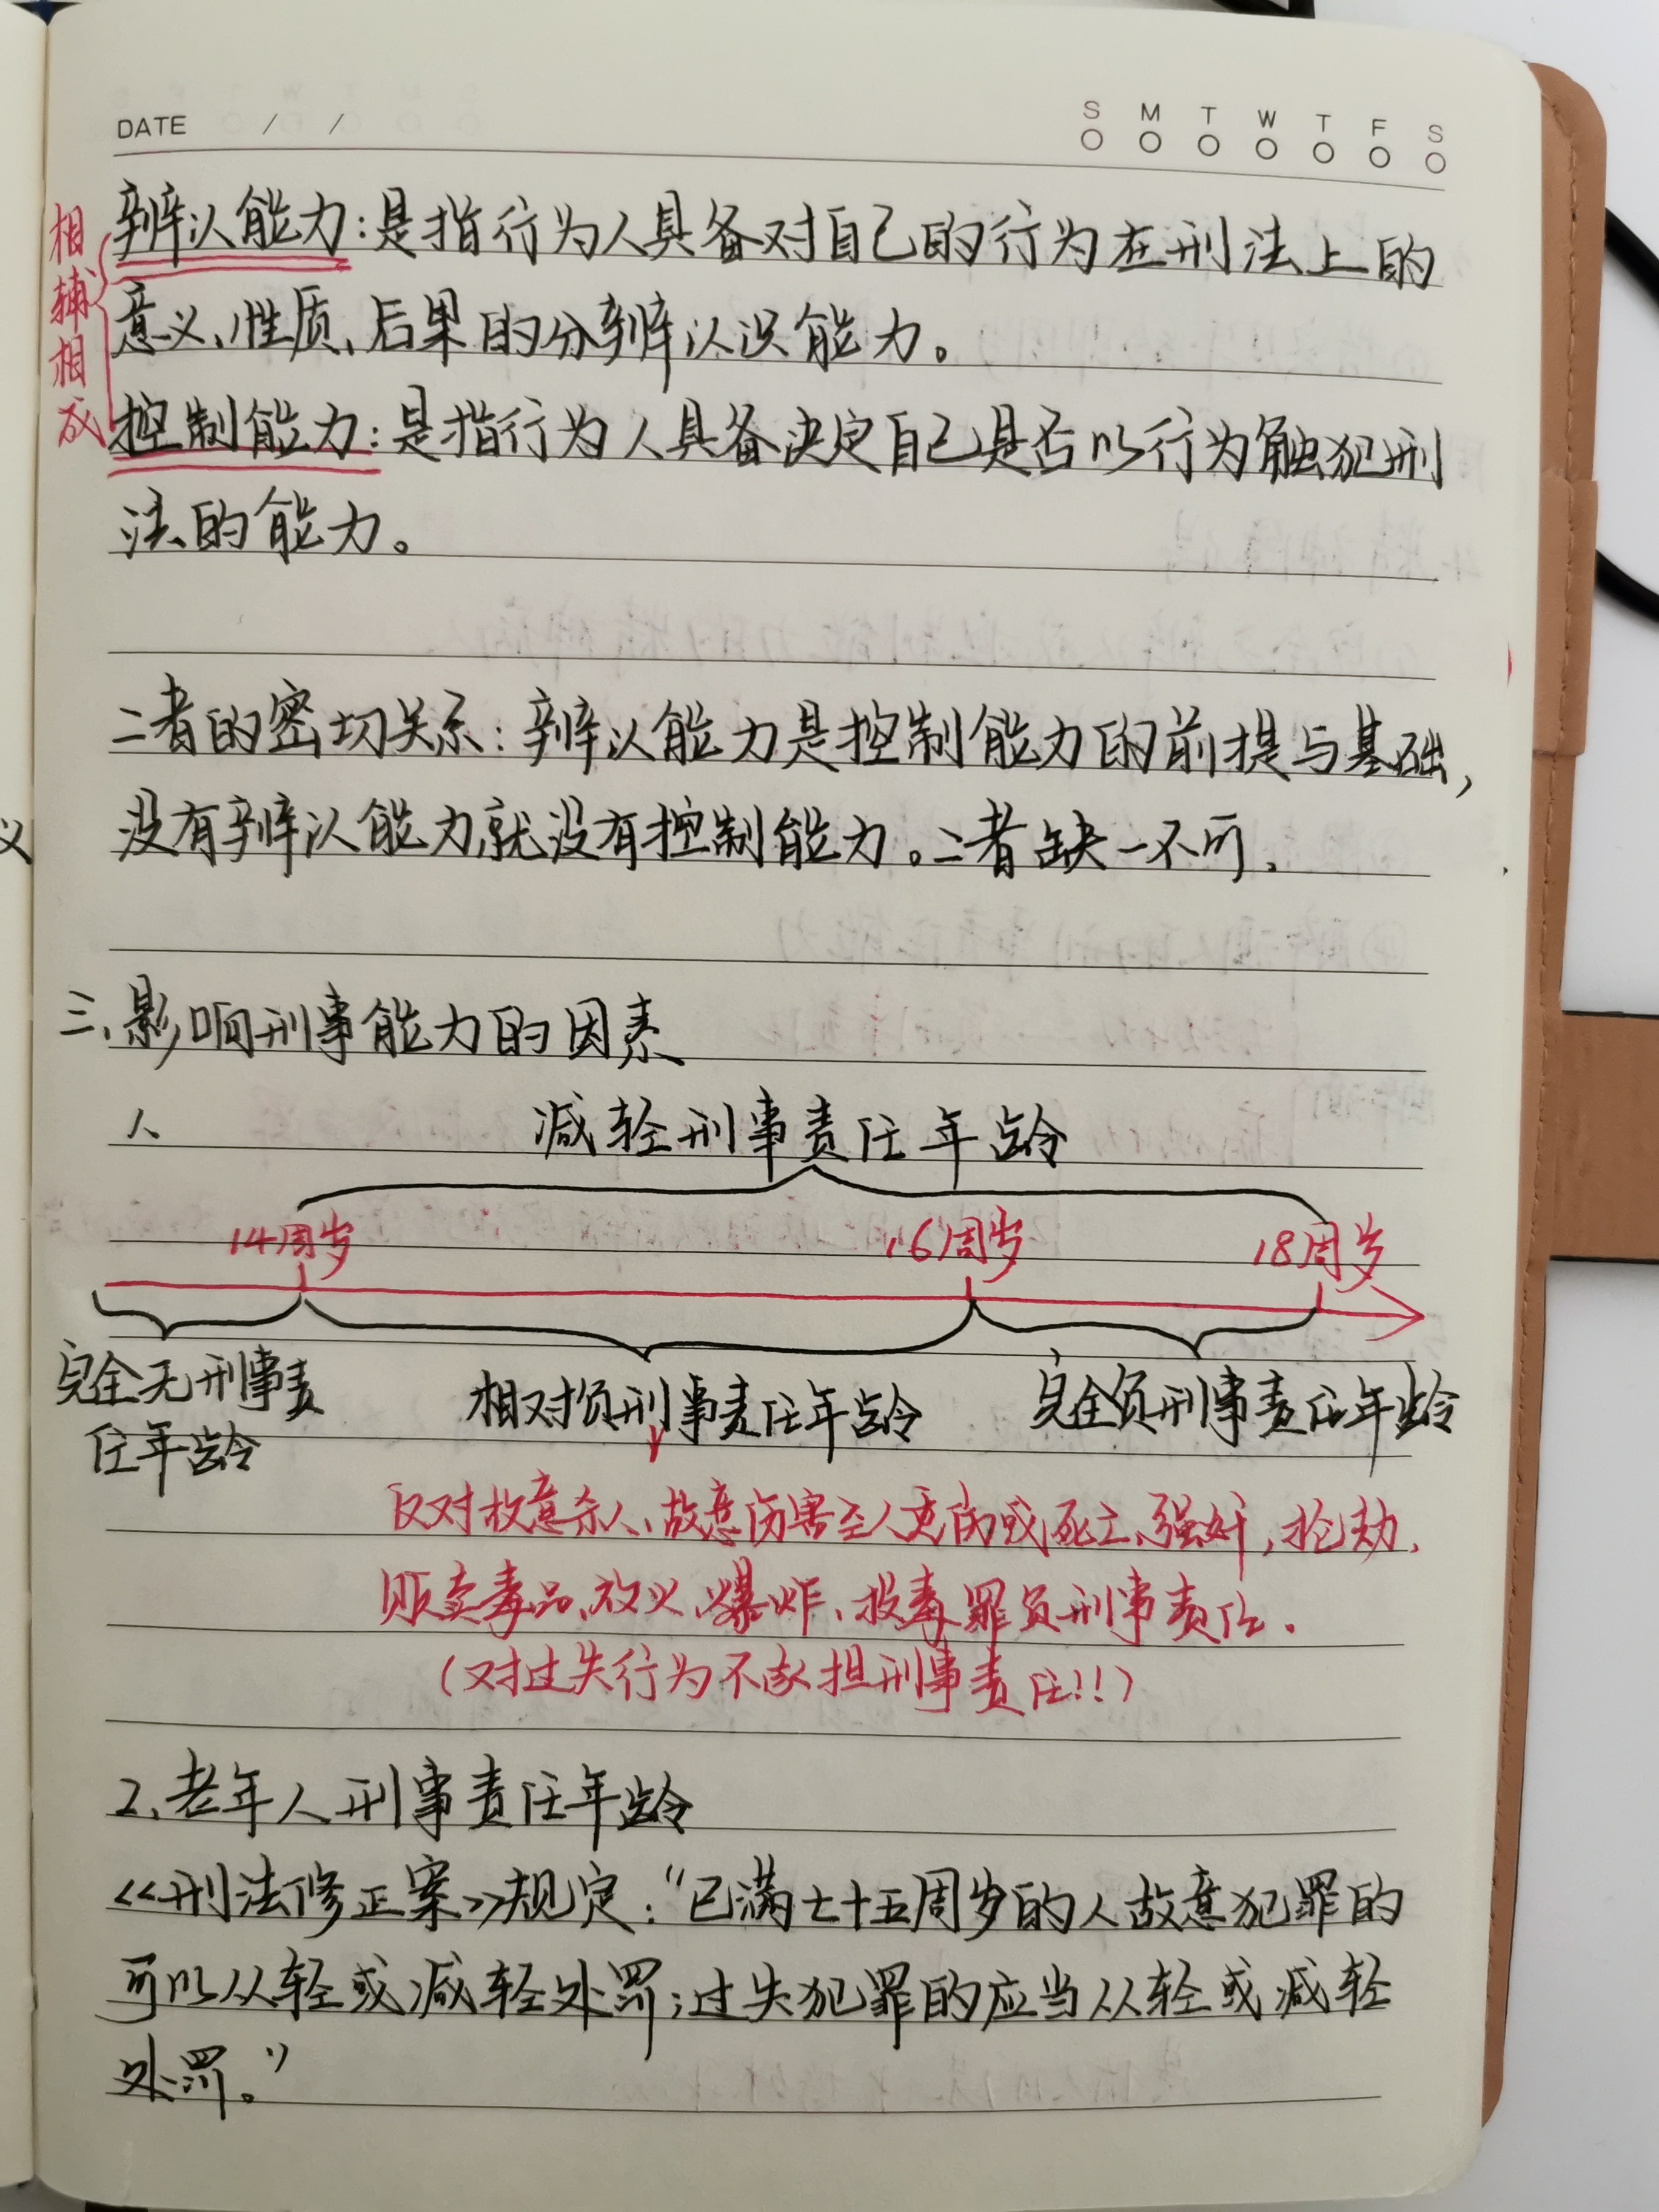 DATE / /
S M T W T F S
相辅相成
辨认能力：是指行为人具备对自己的行为在刑法上的
意义、性质、后果的分辨认识能力。
控制能力：是指行为人具备决定自己是否以行为触犯刑
法的能力。
二者的密切关系：辨认能力是控制能力的前提与基础，
没有辨认能力,就没有控制能力。二者缺一不可.
义
三、影响刑事能力的因素
1、 减轻刑事责任年龄
14周岁 16周岁 18周岁
完全无刑事责
任年龄
相对负刑事责任年龄
完全负刑事责任年龄
仅对故意杀人、故意伤害至人重伤或死亡、强奸,抢劫、
贩卖毒品、放火、爆炸、投毒罪负刑事责任.
(对过失行为不承担刑事责任!!)
2、老年人刑事责任年龄
<<刑法修正案>>规定：“已满七十五周岁的人故意犯罪的
可以从轻或减轻处罚；过失犯罪的应当从轻或减轻
处罚。”